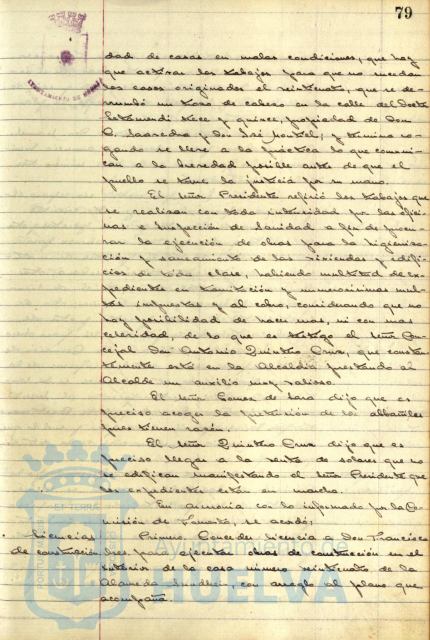 79
AYUNTAMIENTO DE HUELVA
dad de casas en malas condiciones, que hay
que activar los trabajos para que no sucedan
los casos originados el veintiocho, que se de-
rrumbó un trozo de cabezo en la calle del Doctor
Letamendi trece y quince, propiedad de Don
Saavedra y Don José Montiel, y termina ro-
gando se lleve a la práctica lo que comuni-
can a la brevedad posible antes de que el
pueblo se tome la justicia por su mano.
El señor Presidente refirió los trabajos que
se realizan con toda intensidad por las ofici-
nas e Inspección de Sanidad a fin de procu-
rar la ejecución de obras para la higieniza-
ción y saneamiento de las viviendas y edifi-
cios de toda clase, habiendo multitud de ex-
pedientes en tramitación y numerosísimas mul-
tas impuestas y al cobro, considerando que no
hay posibilidad de hacer mas, ni con mas
celeridad, de lo que es testigo el señor Con-
cejal Don Antonio Quintero Cruz, que constan-
temente está en la Alcaldía prestando al
Alcalde un auxilio muy valioso.
El señor Gomez de Lara dijo que es
preciso acoger la pretensión de los albañiles
pues tienen razón.
El señor Quintero Cruz dijo que es
preciso llegar a la venta de solares que no
se edifican manifestando el señor Presidente que
los expedientes están en marcha.
En armonía con lo informado por la Co-
misión de Fomento, se acordó:
Licencias
de construcción
Primero. Conceder licencia a Don Francisco
para ejecutar obras de construcción en el
interior de la casa número veintisiete de la
Alameda Sundheim, con arreglo al plano que
acompaña.
Ayuntamiento de
HUELVA